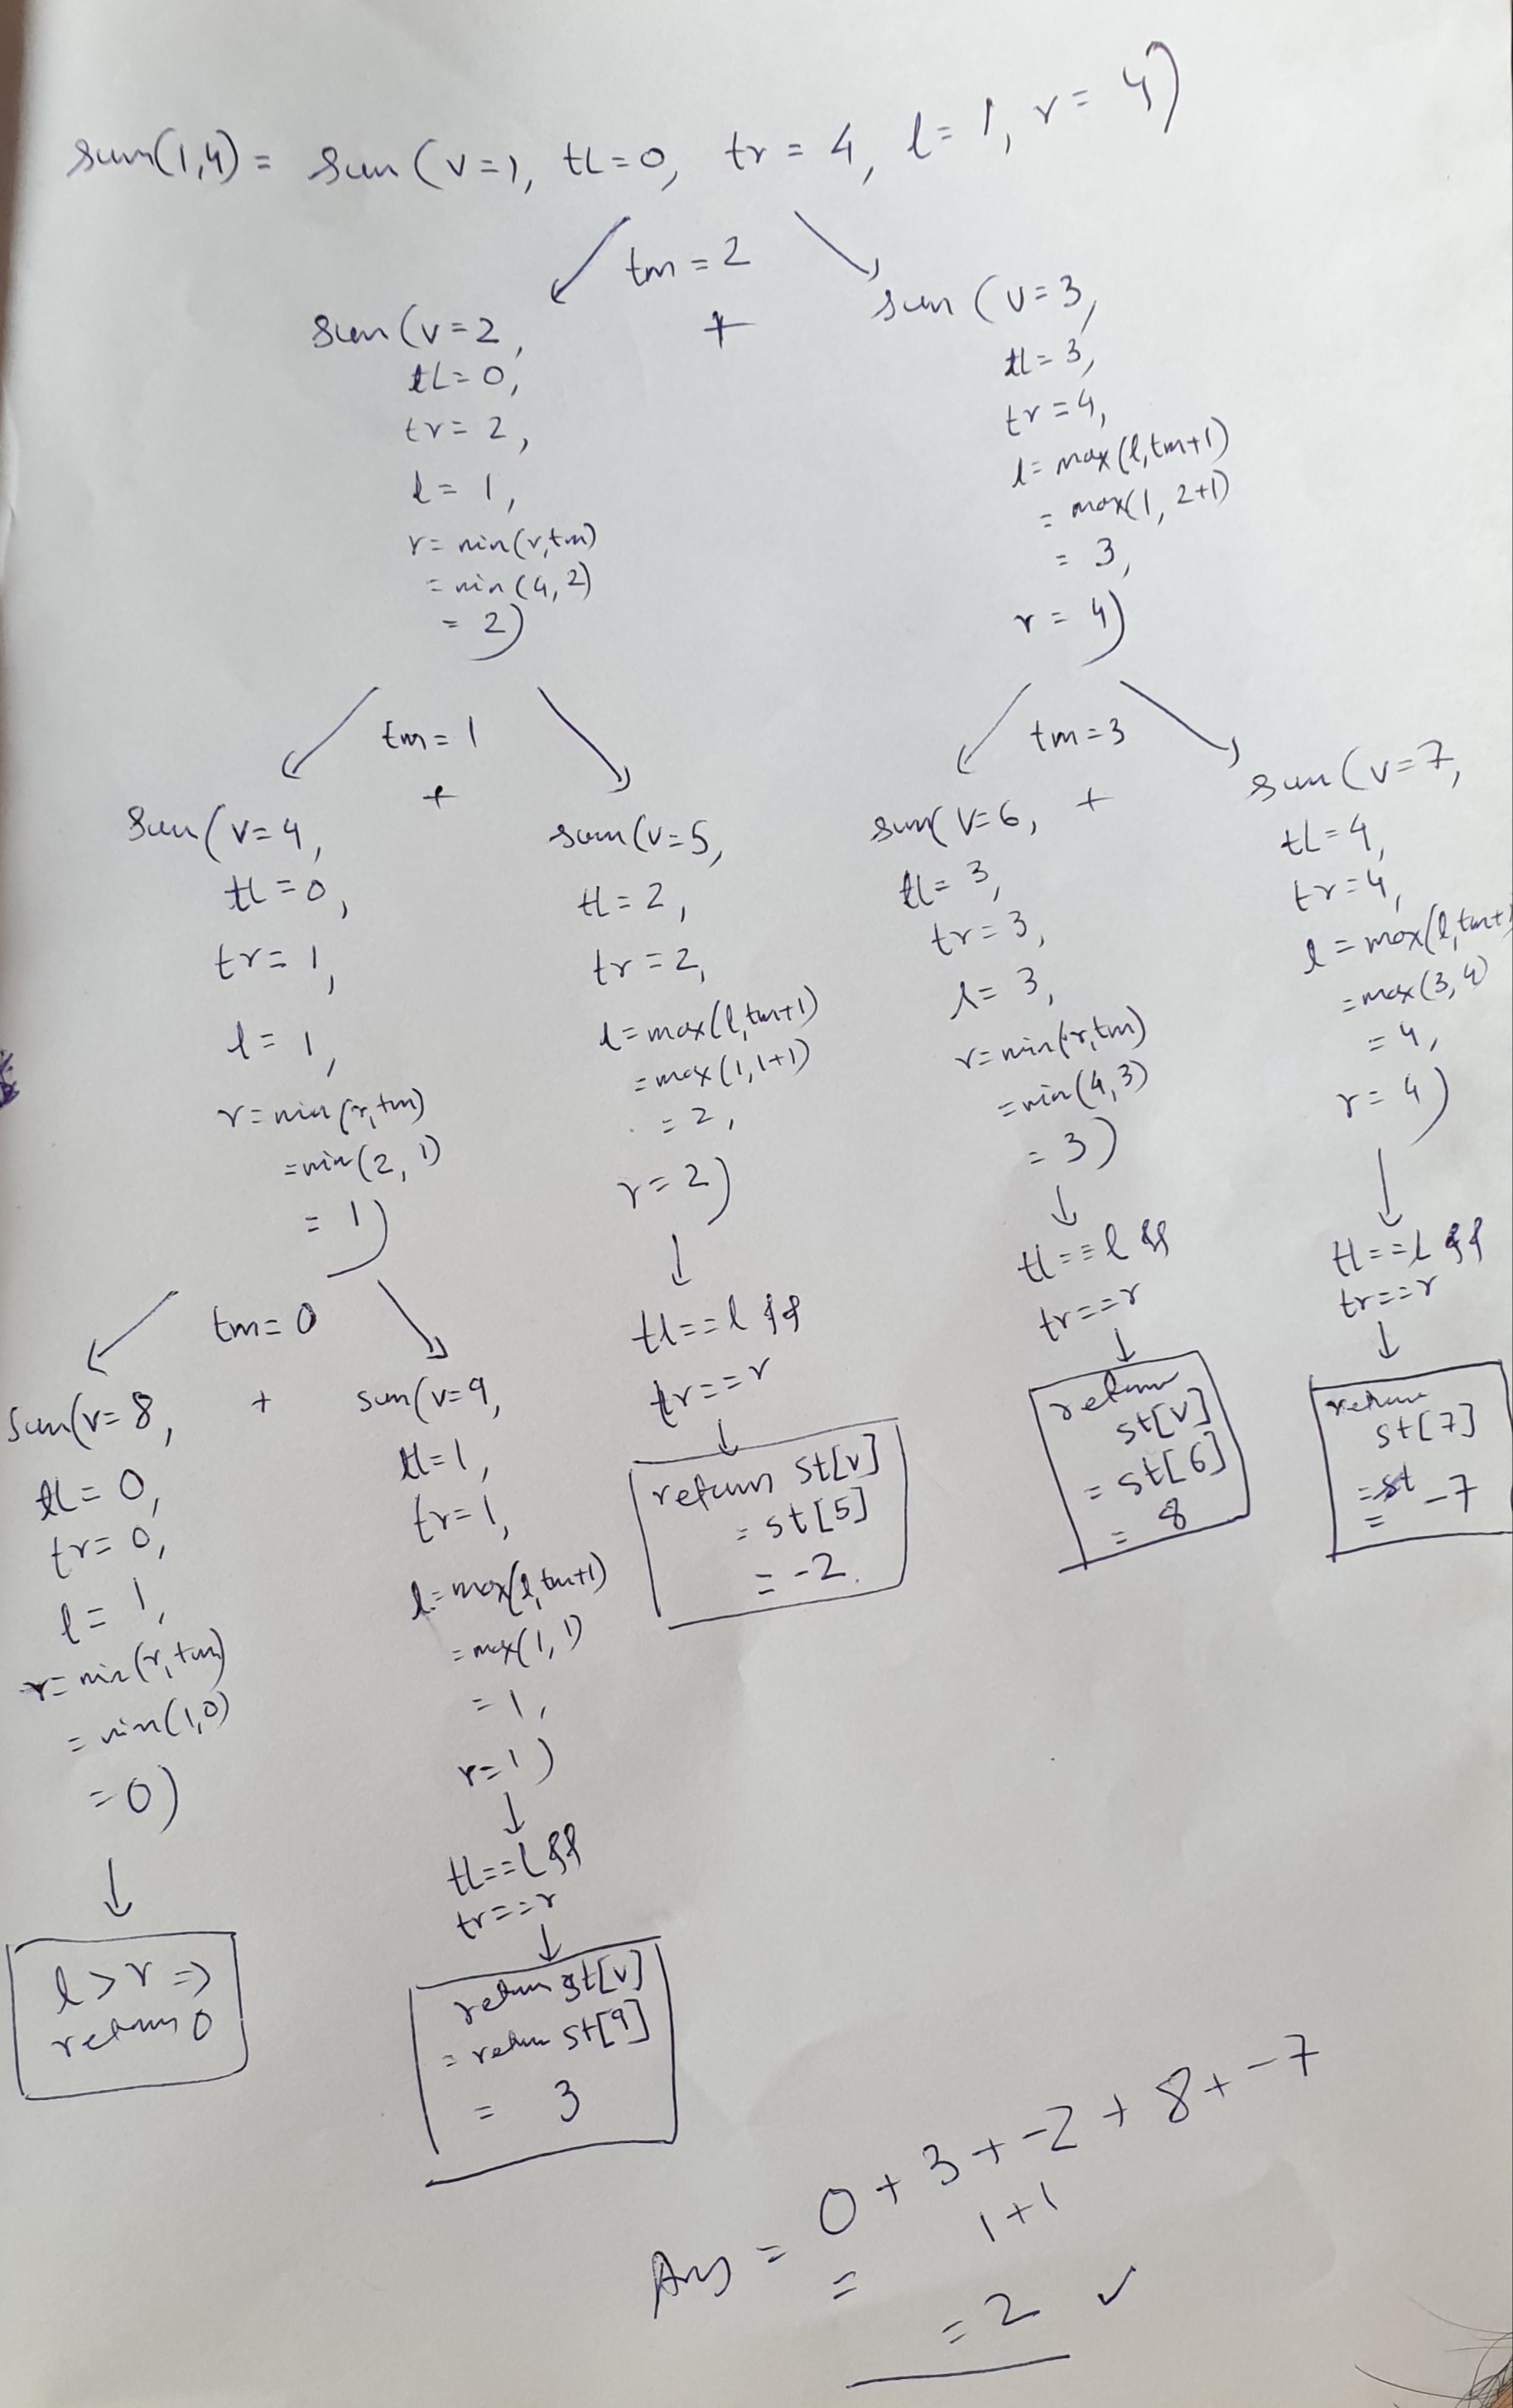 sum(1,4) = sum (v=1, tl=0, tr = 4, l= 1, r = 4)
tm = 2
+
sum (v=2,
tl=0,
tr = 2,
l = 1,
r= min(r,tm)
= min (4, 2)
= 2)
sum (v=3,
tl=3,
tr=4,
l= max(l,tm+1)
= max(1, 2+1)
= 3,
r = 4)
tm=1
+
sum (v=4,
tl=0,
tr= 1,
l= 1,
r=min(r,tm)
=min(2, 1)
= 1)
sum(v=5,
tl=2,
tr=2,
l=max(l,tm+1)
=max(1,1+1)
= 2,
r=2)
tl==l &&
tr==r
return st[v]
= st[5]
= -2.
tm=3
+
sum( v=6,
tl= 3,
tr= 3,
l= 3,
r=min(r,tm)
=min(4,3)
= 3)
tl==l &&
tr==r
return
st[v]
= st[6]
= 8
sum (v=7,
tl=4,
tr=4,
l=max(l,tm+1
=max(3,4)
= 4,
r= 4)
tl==l &&
tr==r
return
st[7]
=
= -7
tm=0
+
sum(v=8,
tl=0,
tr=0,
l= 1,
r=min(r,tm)
= min(1,0)
=0)
l>r =>
return 0
sum(v=9,
tl=1,
tr=1,
l=max(l,tm+1)
=max(1,1)
= 1,
r=1)
tl==l &&
tr==r
return st[v]
= return st[9]
= 3
Ans = 0 + 3 + -2 + 8 + -7
= 1+1
= 2 ✓